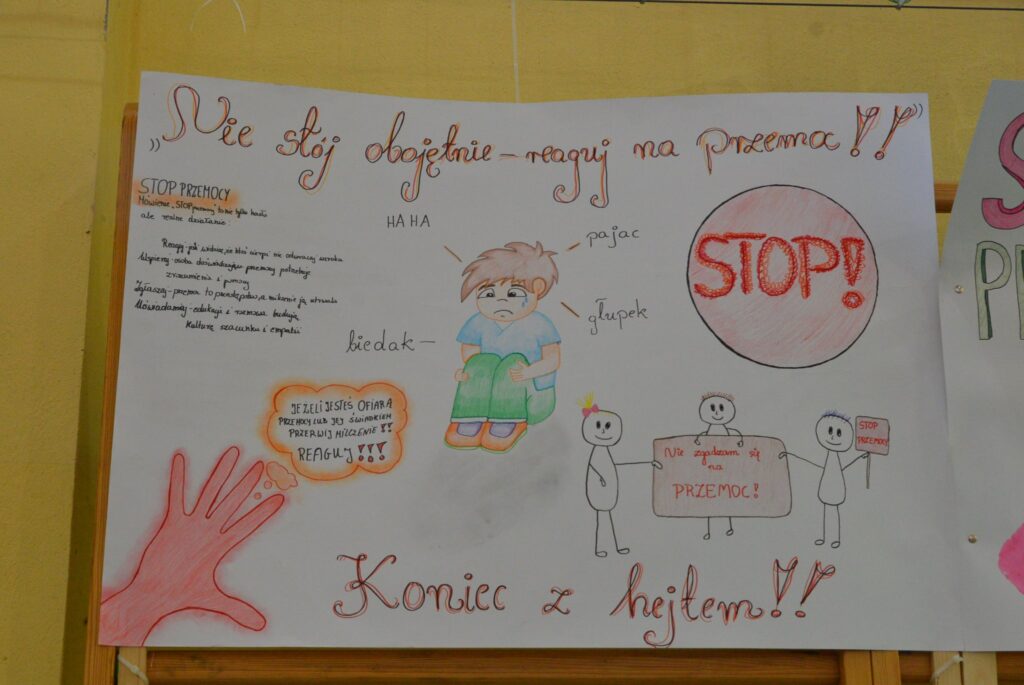 „Nie stój obojętnie - reaguj na przemo !!”
STOP PRZEMOCY
Mówienie „STOP przemocy” to nie tylko hasło
ale realne działanie:
Reaguj - jak widzisz, że ktoś cierpi nie odwracaj wzroku
Wspieraj - osoba doświadczająca przemocy potrzebuje
zrozumienia i pomocy
Zgłaszaj - przemoc to przestępstwo, a milczenie ją utrwala
Uświadamiaj - edukacja i rozmowa budują
kulturę szacunku i empatii
HA HA
pajac
głupek
biedak -
STOP!
JEŻELI JESTEŚ OFIARĄ
PRZEMOCY LUB JEJ ŚWIADKIEM
PRZERWIJ MILCZENIE !!
REAGUJ !!!
Nie zgadzam się
na
PRZEMOC!
STOP
PRZEMOCY
Koniec z hejtem!!